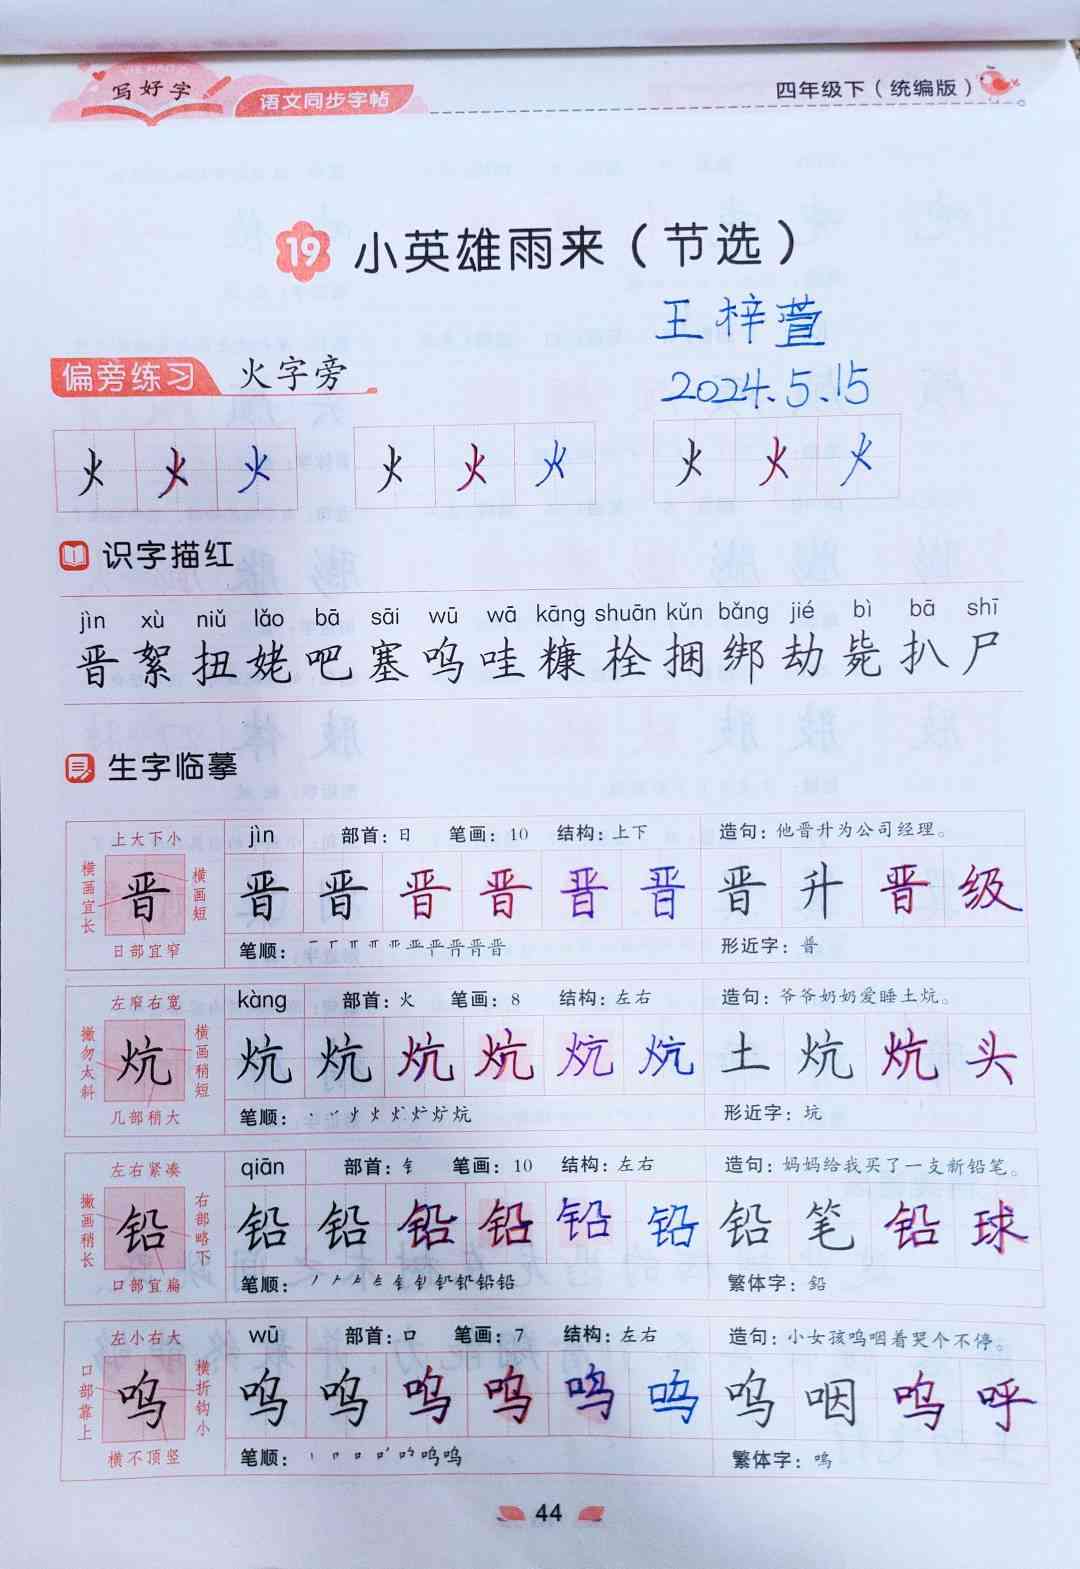 写好字
语文同步字帖
四年级下（统编版）
19 小英雄雨来（节选）
王梓萱
2024.5.15
偏旁练习 火字旁
火 火 火 火 火 火 火 火 火
识字描红
jìn xù niǔ lǎo bā sāi wū wā kāng shuān kǔn bǎng jié bì bā shī
晋 絮 扭 姥 吧 塞 呜 哇 糠 栓 捆 绑 劫 毙 扒 尸
生字临摹
上大下小
横画宜长
晋
横画短
日部宜窄
jìn 部首：日 笔画：10 结构：上下 造句：他晋升为公司经理。
晋 晋 晋 晋 晋 晋 晋 升 晋 级
笔顺： 形近字：普
左窄右宽
撇勿太斜
炕
横画稍短
几部稍大
kàng 部首：火 笔画：8 结构：左右 造句：爷爷奶奶爱睡土炕。
炕 炕 炕 炕 炕 炕 土 炕 炕 头
笔顺： 形近字：坑
左右紧凑
撇画稍长
铅
右部略下
口部宜扁
qiān 部首：钅 笔画：10 结构：左右 造句：妈妈给我买了一支新铅笔。
铅 铅 铅 铅 铅 铅 铅 笔 铅 球
笔顺： 繁体字：鉛
左小右大
口部靠上
呜
横折钩小
横不顶竖
wū 部首：口 笔画：7 结构：左右 造句：小女孩呜咽着哭个不停。
呜 呜 呜 呜 呜 呜 呜 咽 呜 呼
笔顺： 繁体字：嗚
44